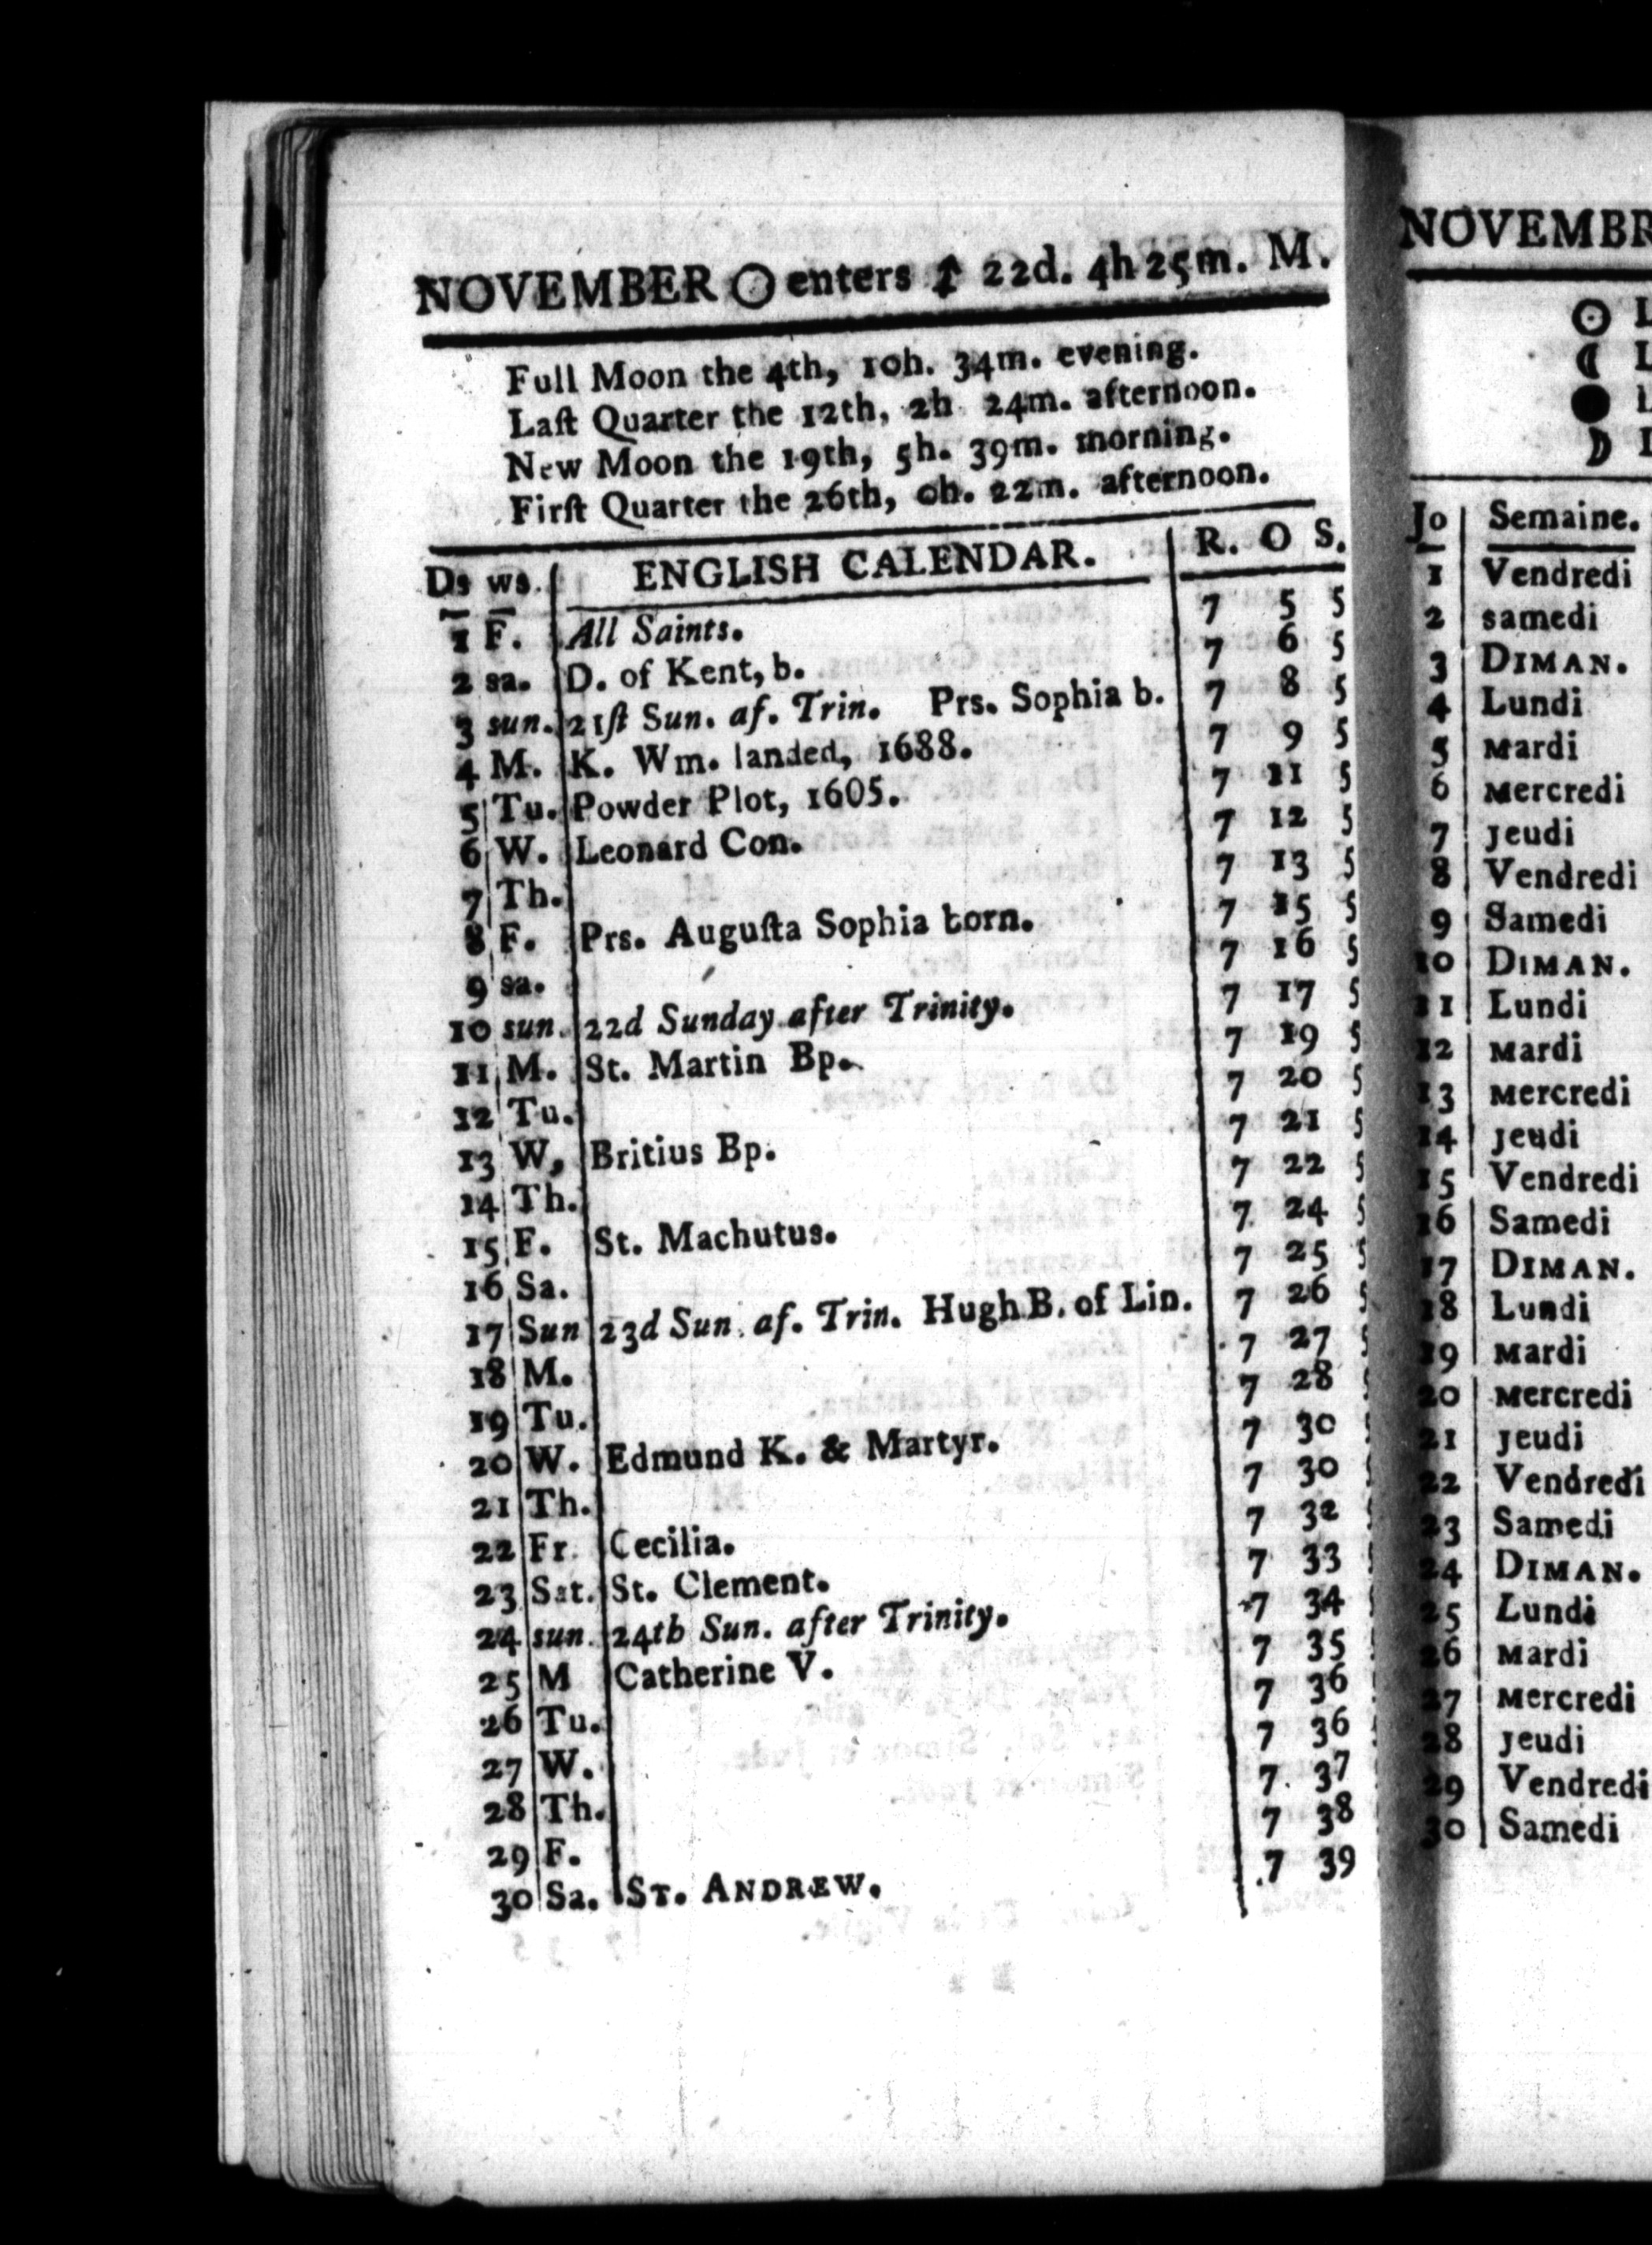 NOVEMBER ☉ enters ♐ 22d. 4h 25m. M.
Full Moon the 4th, 10h. 34m. evening.
Laſt Quarter the 12th, 2h 24m. afternoon.
New Moon the 19th, 5h. 39m. morning.
Firſt Quarter the 26th, 0h. 22m. afternoon.
Ds ws. ENGLISH CALENDAR. R. O S.
1 F. All Saints. 7 5 5
2 sa. D. of Kent, b. 7 6 5
3 sun. 21ſt Sun. af. Trin. Prs. Sophia b. 7 8 5
4 M. K. Wm. landed, 1688. 7 9 5
5 Tu. Powder Plot, 1605. 7 11 5
6 W. Leonard Con. 7 12 5
7 Th. 7 13 5
8 F. Prs. Auguſta Sophia born. 7 15 5
9 sa. 7 16 5
10 sun. 22d Sunday after Trinity. 7 17 5
11 M. St. Martin Bp. 7 19 5
12 Tu. 7 20 5
13 W, Britius Bp. 7 21 5
14 Th. 7 22 5
15 F. St. Machutus. 7 24 5
16 Sa. 7 25 5
17 Sun 23d Sun. af. Trin. Hugh B. of Lin. 7 26 5
18 M. 7 27 5
19 Tu. 7 28
20 W. Edmund K. & Martyr. 7 30
21 Th. 7 30
22 Fr. Cecilia. 7 32
23 Sat. St. Clement. 7 33
24 sun. 24th Sun. after Trinity. 7 34
25 M Catherine V. 7 35
26 Tu. 7 36
27 W. 7 36
28 Th. 7 37
29 F. 7 38
30 Sa. ST. ANDREW. 7 39
NOVEMBR
☉ L
☾ L
● L
☽ L
Jo Semaine.
1 Vendredi
2 samedi
3 DIMAN.
4 Lundi
5 Mardi
6 Mercredi
7 Jeudi
8 Vendredi
9 Samedi
10 DIMAN.
11 Lundi
12 Mardi
13 Mercredi
14 Jeudi
15 Vendredi
16 Samedi
17 DIMAN.
18 Lundi
19 Mardi
20 Mercredi
21 Jeudi
22 Vendredi
23 Samedi
24 DIMAN.
25 Lundi
26 Mardi
27 Mercredi
28 Jeudi
29 Vendredi
30 Samedi